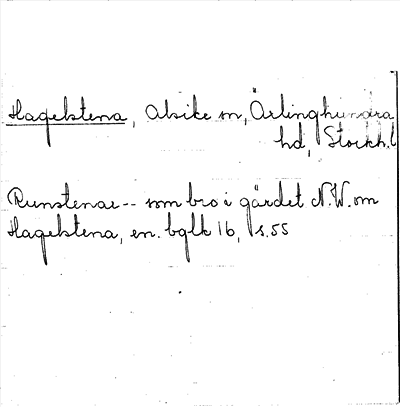 Hagelstena, Alsike sn, Ärlinghundra
hd, Stockh.l
Runstenar -- som bro i gärdet N.W. om
Hagelstena, en. bglk 16, s.55